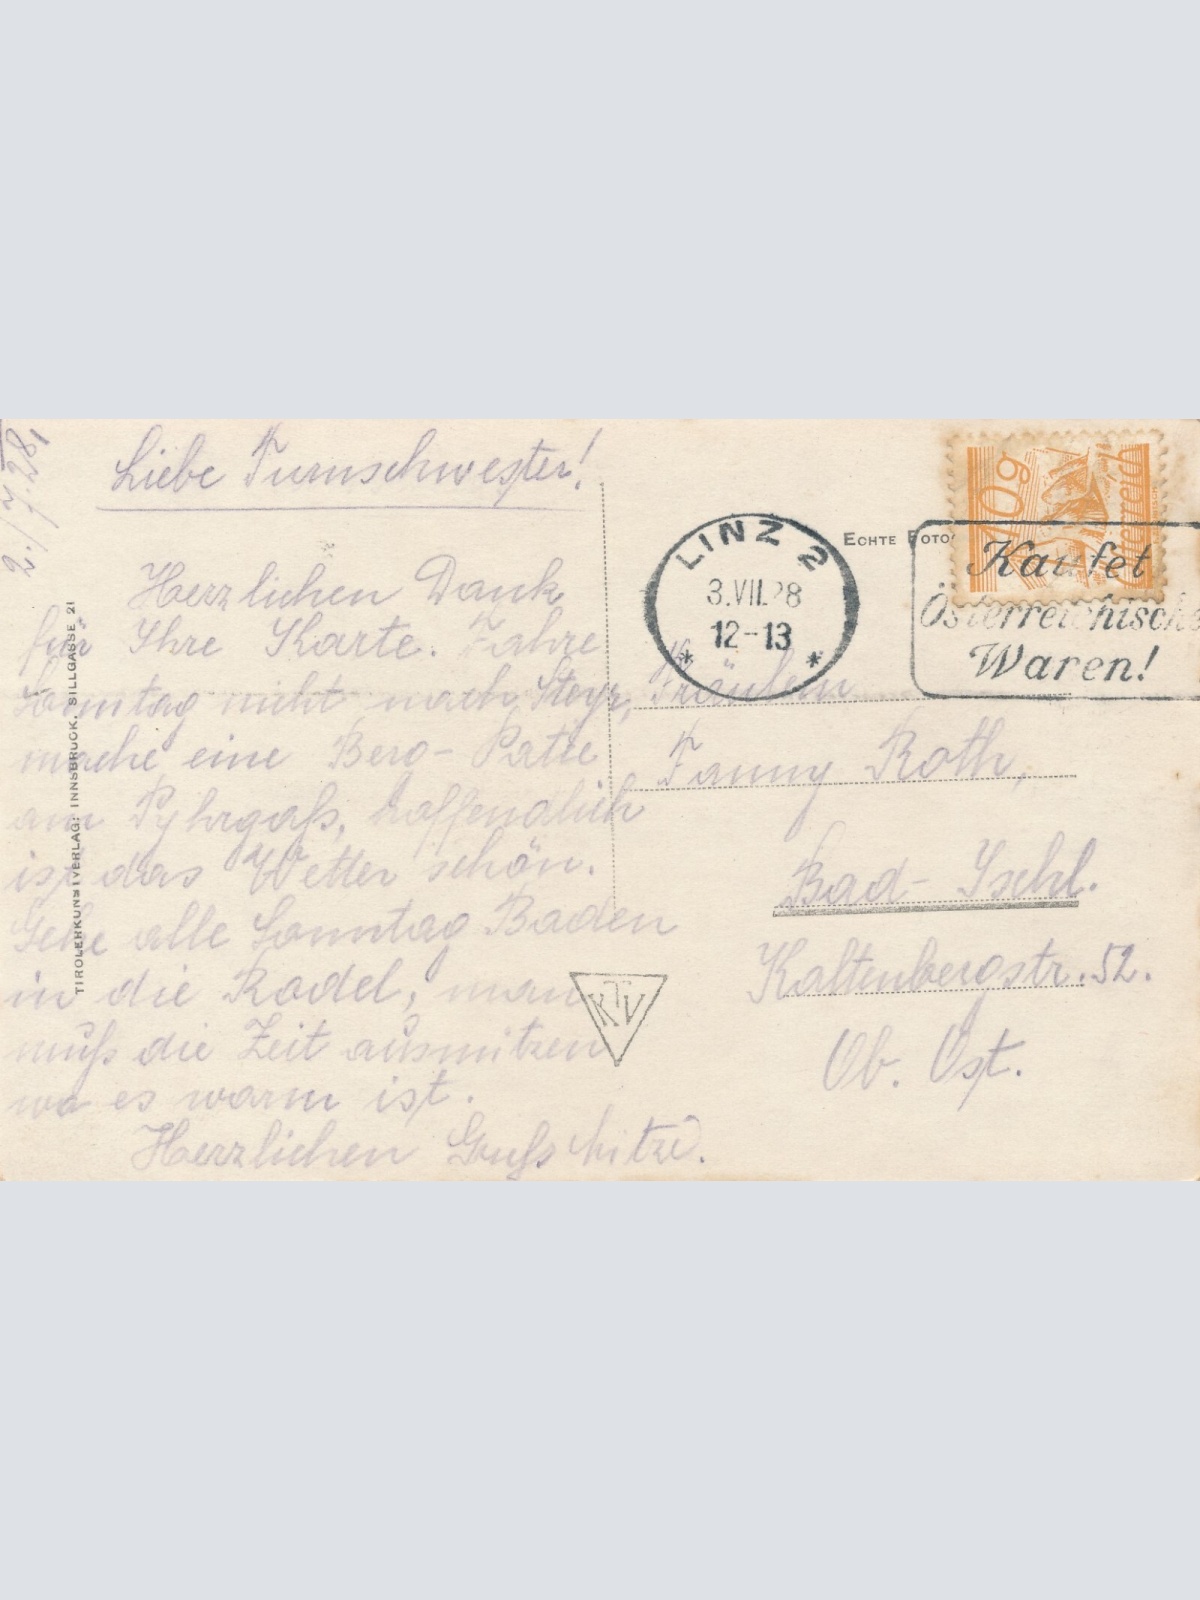 2./7.28.
Liebe Turnschwester!
Herzlichen Dank
für Ihre Karte. Fahre
Sonntag nicht nach Steyr,
mache eine Berg-Patie
am Pyhrgaß, hoffendlich
ist das Wetter schön.
Gehe alle Sonntag Baden
in die Rodel, man
muß die Zeit ausnützen
wo es warm ist.
Herzlichen Gruß Mitzi.
TIROLERKUNSTVERLAG: INNSBRUCK, SILLGASSE 21
KTV
ECHTE FOTO
LINZ 2
3.VII.28
12-13
* *
10g
Österreich
Kaufet
Österreichische
Waren!
Fräulein
Fanny Roth,
Bad-Ischl.
Kaltenbergstr. 52.
Ob. Öst.